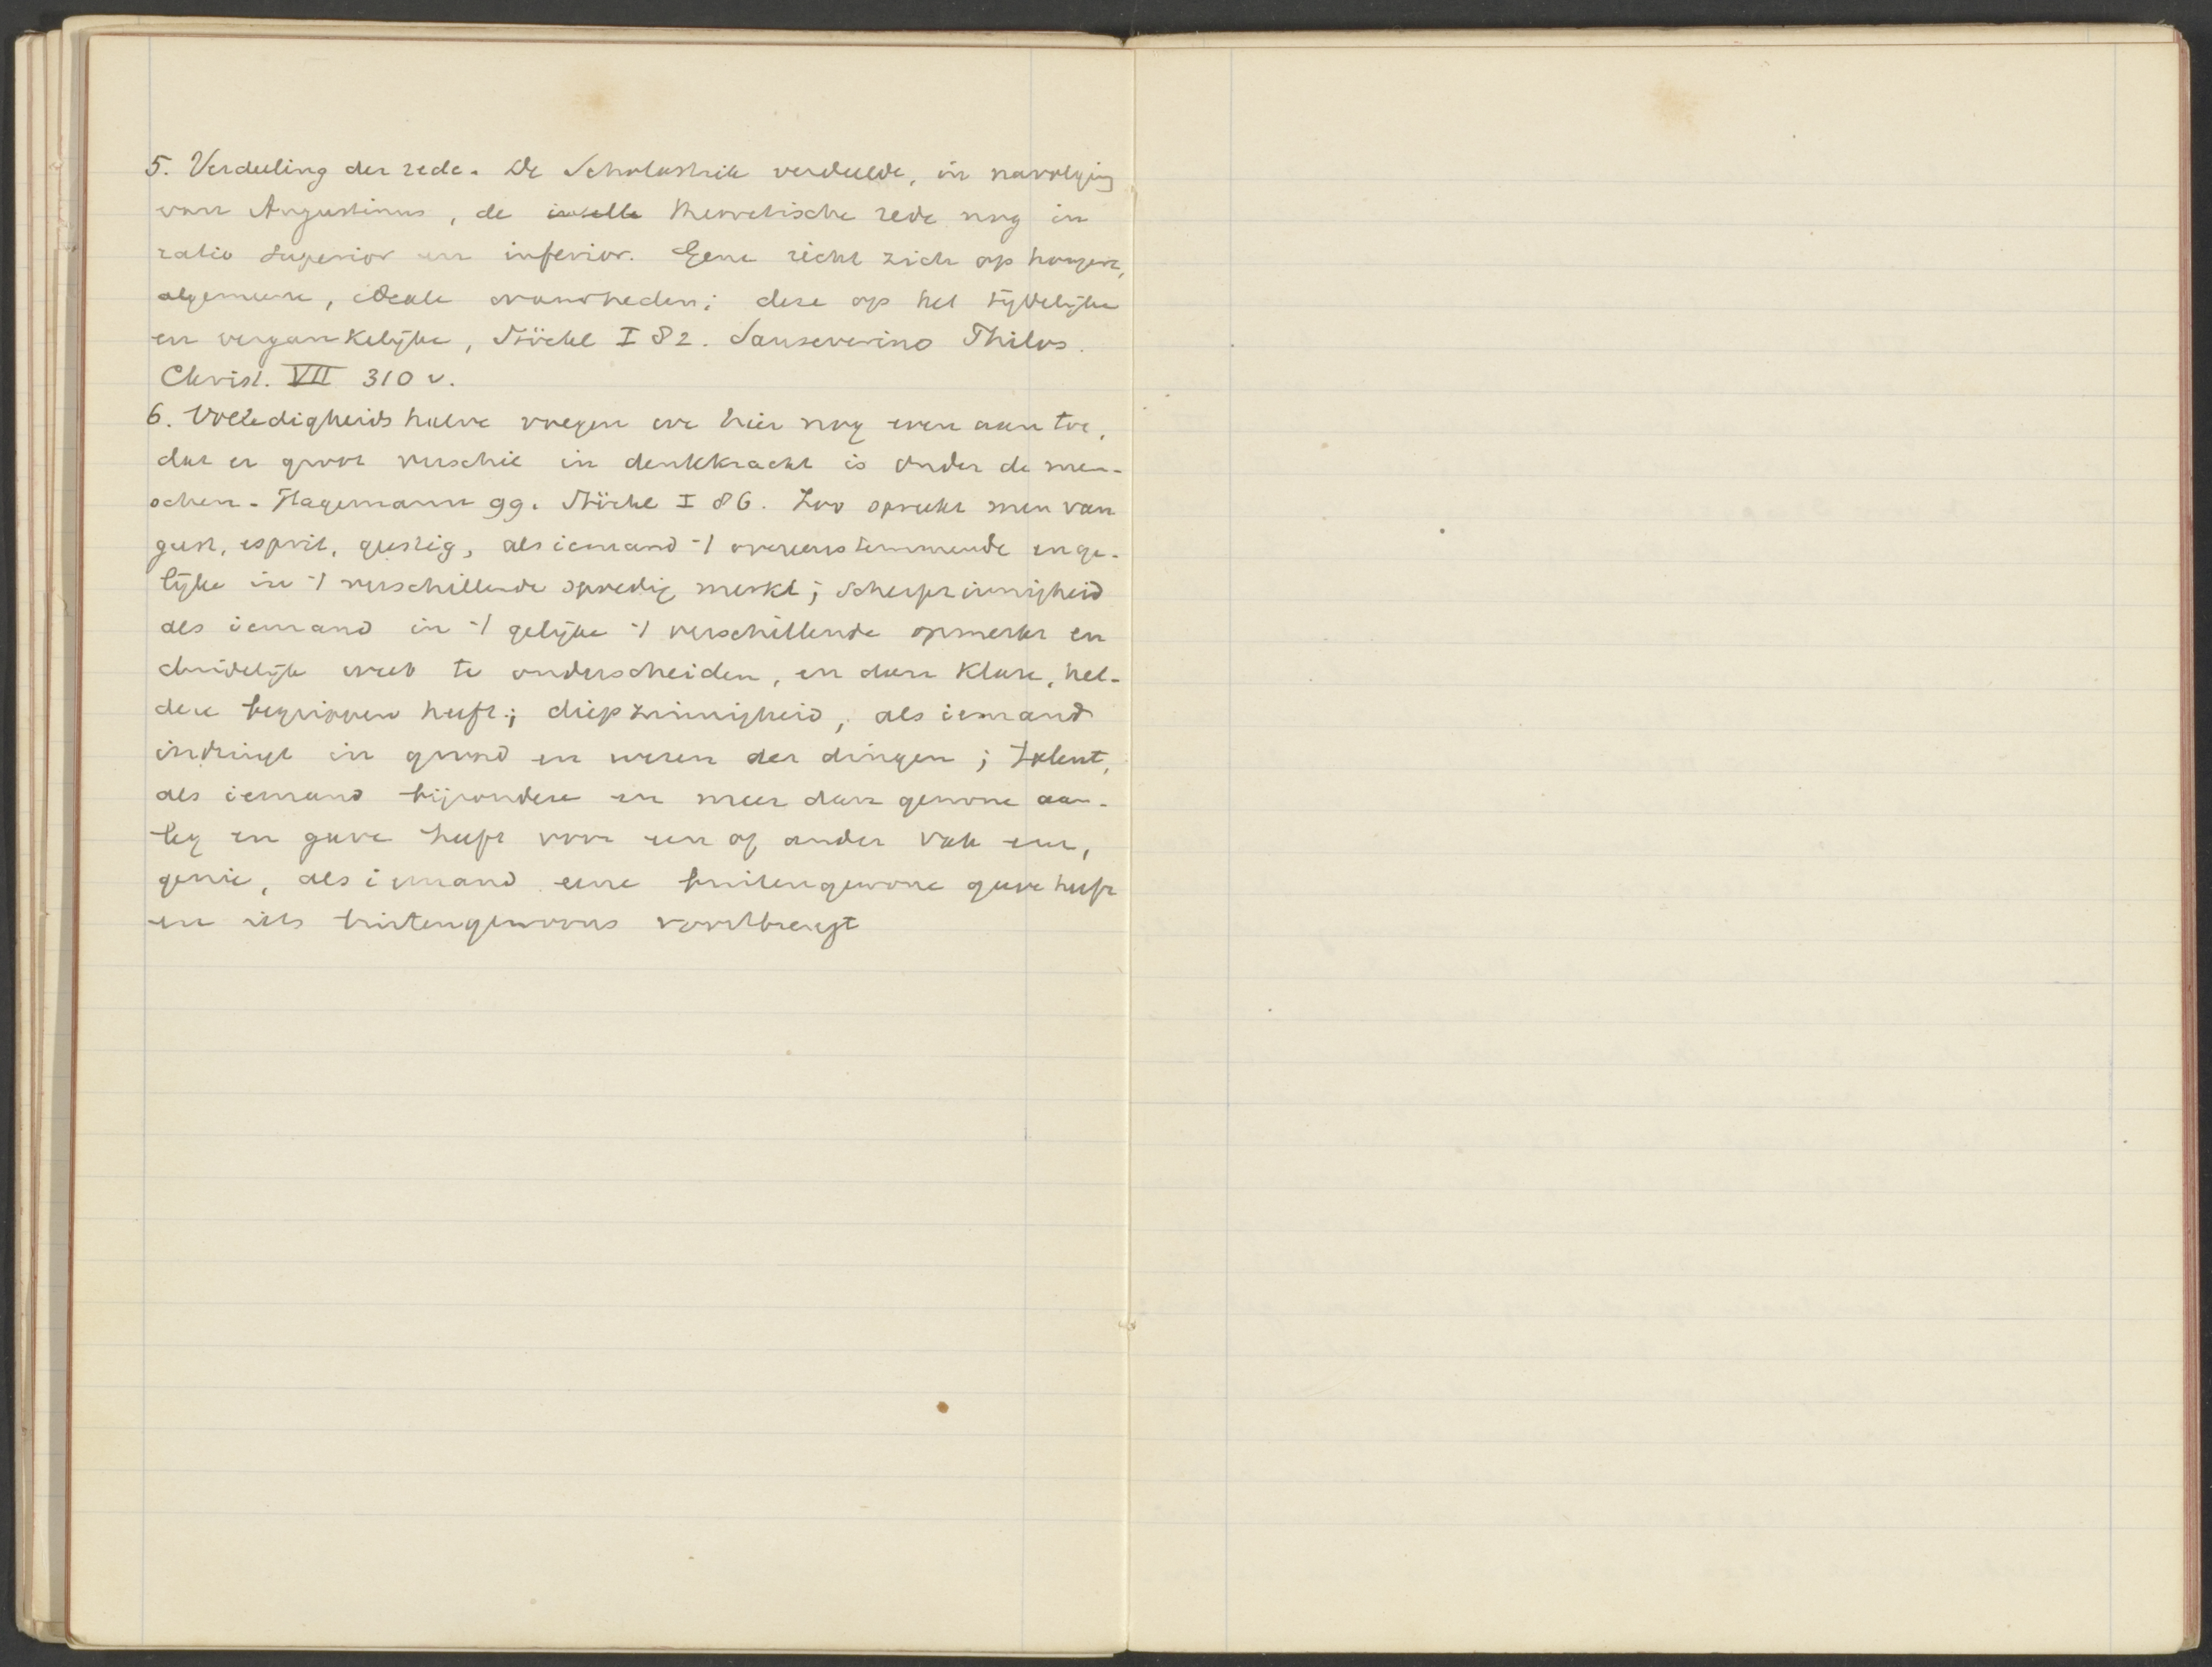 5. Verdeeling der rede. De Scholastiek verdeelde, in navolging
van Augustinus, de theoretische rede nog in
ratio superior en inferior. Gene richt zich op hoogere,
algemeene, ideale waarheden; deze op het tijdelijke
en vergankelijke, Stöckl I 82. Sanseverino Philos.
Christ. VII 310 v.
6. Volledigheidshalve voegen we hier nog even aan toe,
dat er groot verschil in denkkracht is onder de men-
schen. Hagemann 99. Stöckl I 86. Zoo spreekt men van
geest, esprit, geestig, als iemand -/ overeenstemmende en ge-
lijke in -/ verschillende spoedig merkt; scherpzinnigheid
als iemand in -/ gelijke -/ verschillende opmerkt en
duidelijk weet te onderscheiden, en dan klare, hel-
dere begrippen heeft; diepzinnigheid, als iemand
indringt in grond en wezen der dingen; talent,
als iemand bijzondere en meer dan gewone aan-
leg en gave heeft voor een of ander vak enz,
genie, als iemand eene buitengewone gave heeft
en iets buitengewoons voortbrengt